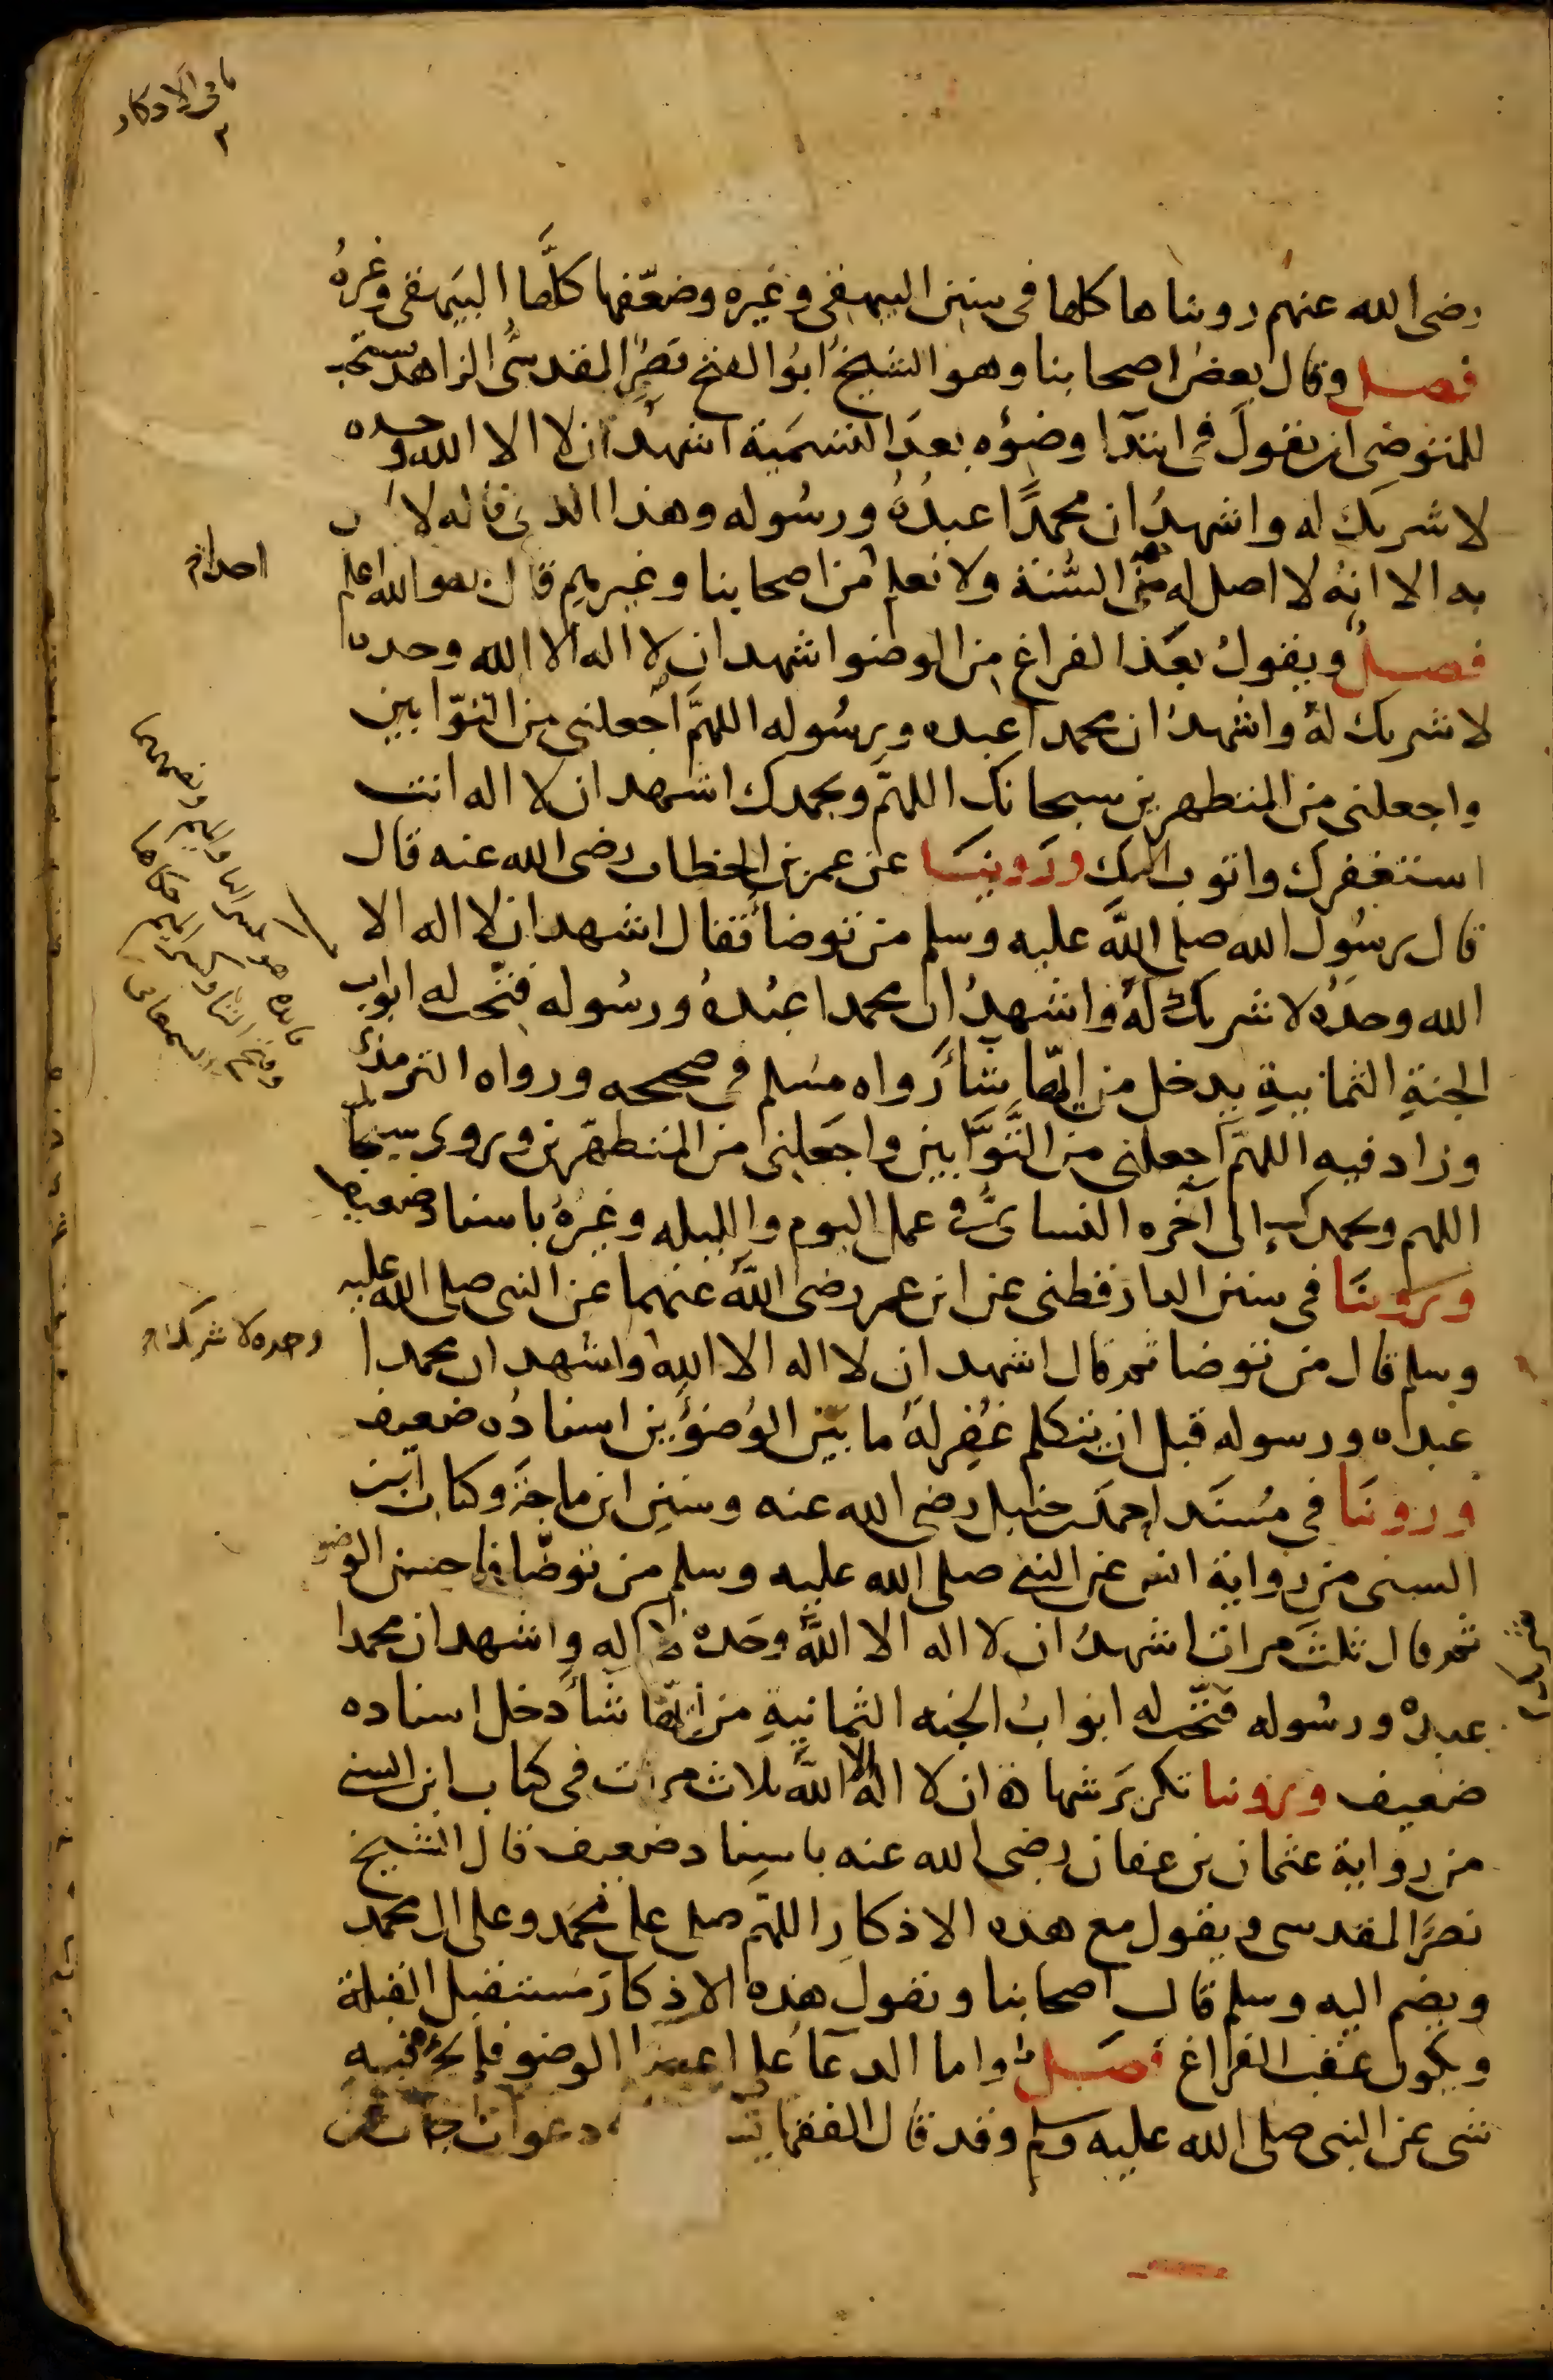 ثانى الاذكار
٢
رضى الله عنهم رويناها كلها فى سنن البيهقى وغيره وضعّفها كلَّها البيَهقى وغيرهُ
فصل وقال بعضُ اصحابنا وهو الشيخُ ابوُ الفتح نصرُ المقدسىُّ الزاهد يستحب
للمتوضى ان يقولَ فى ابتدآ وضوُئه بعدَ التسمَية اشهدُ ان لا الا الله وحده
لا شريك له واشهدُ ان محمدًا عبدُهُ ورسُوله وهذا الذى قاله لا
به الا انهُ لا اصل له من السُّنة ولا نعلم من اصحابنا وغيرهم قال به والله اعلم
احدا
فصلٌ ويقولُ بعَد الفراغ من الوضو اشهد ان لا اله الا الله وحده
لا شريك لهُ واشهدُ ان محمدا عبده ورسُوله اللهمَّ اجعلنى من التوّابين
واجعلنى من المتطهرين سبحانك اللهمَّ وبحمدك اشهد ان لا اله انت
استغفرك واتوب اليك ورَوينَا عن عمر بن الخطاب رضى الله عنه قال
قال رسُول الله صلى اللَّه عليه وسلم من توضأ فقال اشهد ان لا اله الا
الله وحدَهُ لا شريك لهُ واشهدُ ان محمدا عبْدهُ ورسُوله فتّحت له ابواب
الجنةِ الثمانيةِ يدخل من ايّها شأ رواه مسُلم فى صحيحه ورواه الترمذى
وزاد فيهِ اللهمَّ اجعلنى من التَّوَّابين واجعَلنى من المتطهّرين وروى سبحانك
اللهم وبحمدك الى آخره النساىُّ فى عمل اليوم والليله وغيرهُ باسناد ضعيف
ورَوينَا فى سنن الدارقطنى عن ابن عمر رضى اللَّه عنهما عن النبى صلى الله عليه
وسلم قال من توضا ثم قال اشهد ان لا اله الا الله واشهد ان محمدا
وحده لا شريك له
عبده ورسوله قبل ان يتكلم غُفِر لهُ ما بيَن الوُضوُءين اسنادُه ضعيف
وروينَا فى مُسنَد احمد بن حنبل رضى الله عنه وسننِ ابن ماجَة وكتاب ابن
السنى من رواية انس عن النبى صلى الله عليه وسلم من توضّا فاحسن الوضو
ثم قال ثلثَ مرات اشهدُ ان لا اله الا اللَّه وحَده لا له واشهد ان محمدا
شريك
عبدهُ ورسُوله فتّحت له ابوابُ الجنه الثمانيةِ من ايّها شأ دخل اسناده
ضعيف وروينا تكريرَ شهادة ان لا اله الا اللَّه ثلاث مرات فى كتاب ابن السنى
من رواية عثمان بن عفان رضى الله عنه باسناد ضعيف قال الشيخ
نصرُ المقدسى ويقول مع هذه الاذكار اللهمّ صل على محمَد وعلى ال محمد
ويضم اليه وسلم قال اصحابنا ويقول هذه الاذكارَ مُستقبل القبلة
ويكون عقب الفراغ فصَلٌ واما الدعآ على اعضا الوضو فلم يجى فيه
شى عن النبى صلى الله عليه وسلم وقد قال الفقها دعوات جات عن